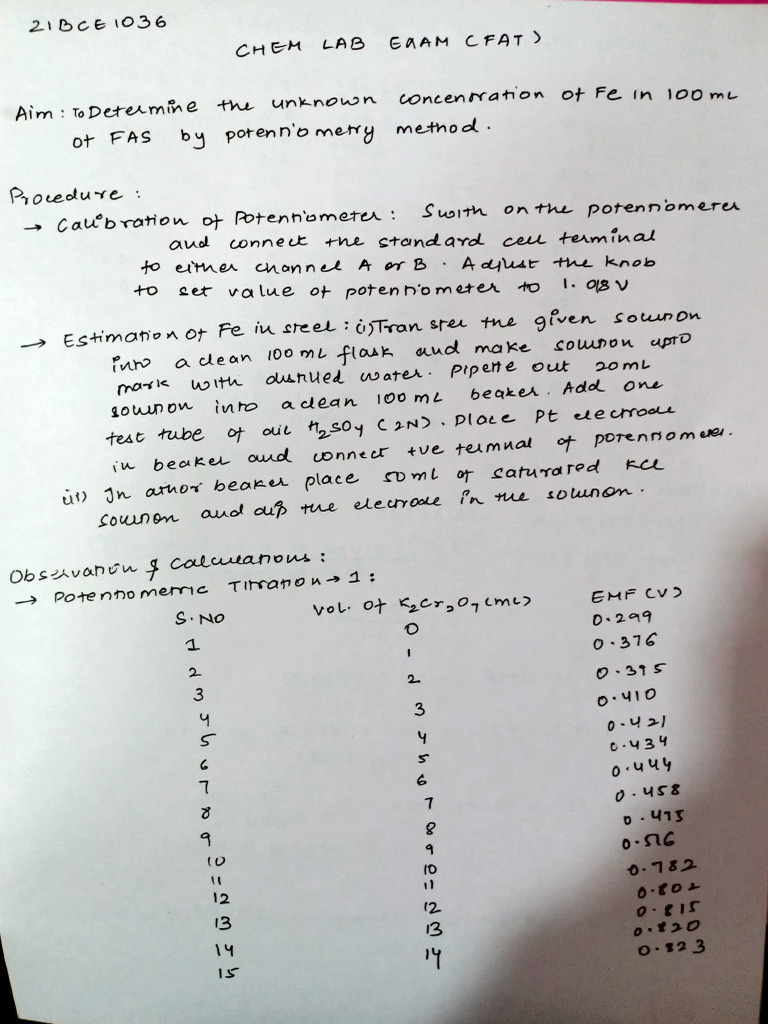 21BCE1036
CHEM LAB EXAM (FAT)
Aim : To Determine the unknown concentration of Fe in 100 mL
of FAS by potentiometry method.
Procedure :
→ Calibration of Potentiometer : Swith on the potentiometer
and connect the standard cell terminal
to either channel A or B. Adjust the knob
to set value of potentiometer to 1.018 V
→ Estimation of Fe in steel : (i) Transfer the given solution
into a clean 100 mL flask and make solution upto
mark with distilled water. Pipette out 20 mL
solution into a clean 100 mL beaker. Add one
test tube of dil H2SO4 (2N). Place Pt electrode
in beaker and connect +ve terminal of potentiometer.
(ii) In another beaker place 50 mL of saturated KCl
solution and dip the electrode in the solution.
Observation & Calculations :
→ Potentiometric Titration → 1 :
S.NO Vol. Of K2Cr2O7 (mL) EMF (V)
1 0 0.299
2 1 0.376
3 2 0.395
4 3 0.410
5 4 0.421
6 5 0.434
7 6 0.444
8 7 0.458
9 8 0.475
10 9 0.516
11 10 0.782
12 11 0.802
13 12 0.815
14 13 0.820
15 14 0.823